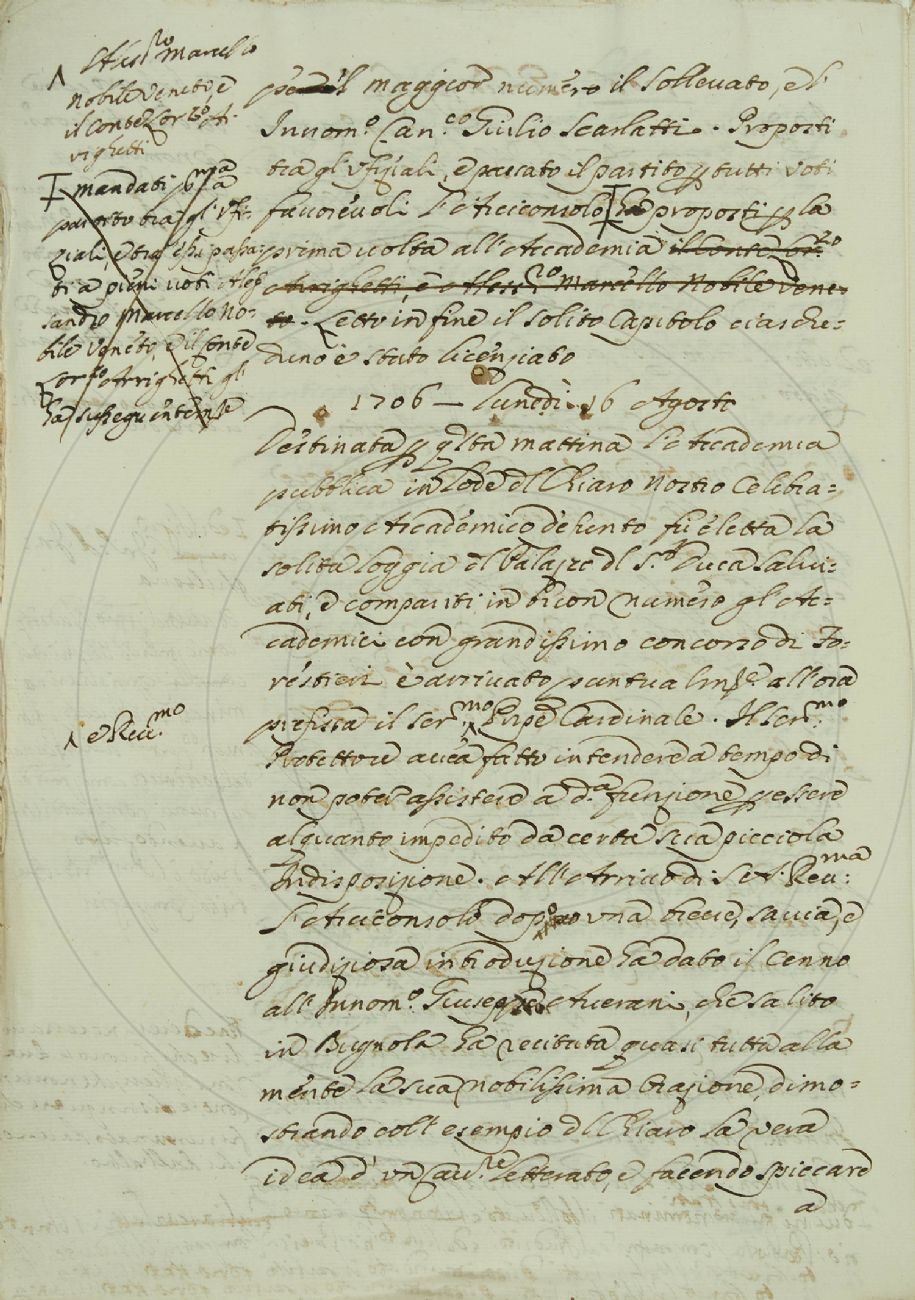 Aless.ro Marcello
nobile Veneto, e
il Conte Lor.zo Ar-
righetti
mandati p.ma a
partito tra gl'Ufi-
ziali, e tra essi passa-
ti a pieni voti Ales-
sandro Marcello No-
bile Veneto, e il Conte
Lor.zo Arrighetti gl
ha susseguentem.te
per il maggior numero il Sollevato, e l'
Innom.o Can.co Giulio Scarlatti. Proposti
tra gl'Ufiziali, e passato il partito p tutti voti
favorevoli l'Arciconsolo ha proposti p la
prima volta all'Accademia il Conte Lor.zo
Arrighetti, e Aless.ro Marcello Nobile Vene-
to. Letto in fine il solito Capitolo ciasche-
duno è stato licenziato
1706 — Lunedì 16 Agosto
Destinata p q.sta mattina l'Accademia
pubblica in lode del Chiaro Nostro Celebra-
tissimo Accademico defunto fù eletta la
solita loggia del Palazzo del S.r Duca Salvi-
ati, e comparsi in buon numero gl'Ac-
cademici con grandissimo concorso di Fo-
restieri è arrivato puntualm.te all'ora
prefissa il Ser.mo
e Rev.mo
Prpe Cardinale. Il Ser.mo
Protettore avea fatto intendere a tempo di
non poter assistere a d.a funzione p essere
alquanto impedito da certa sua picciola
Indisposizione. All'Arrivo di S. A. Rev.ma
l'Arciconsolo dopo una breve, savia, e
giudiziosa introduzione ha dato il cenno
all'Innom.o Giuseppe Averani, che salito
in Bugnola ha recitata quasi tutta alla
mente la sua nobilissima Orazione, dimo-
strando coll'esempio del Chiaro la vera
idea d'un Cav.re letterato, e facendo spiccare
a